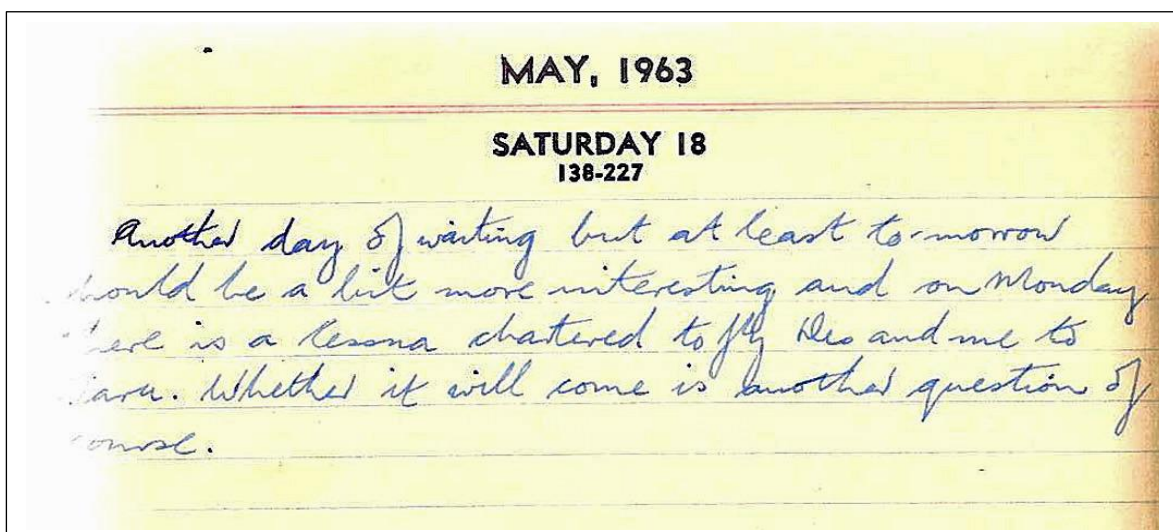 MAY, 1963
SATURDAY 18
138-227
Another day of waiting but at least to-morrow
should be a bit more interesting and on Monday
there is a Cessna chartered to fly Des and me to
Whether it will come is another question of
course.